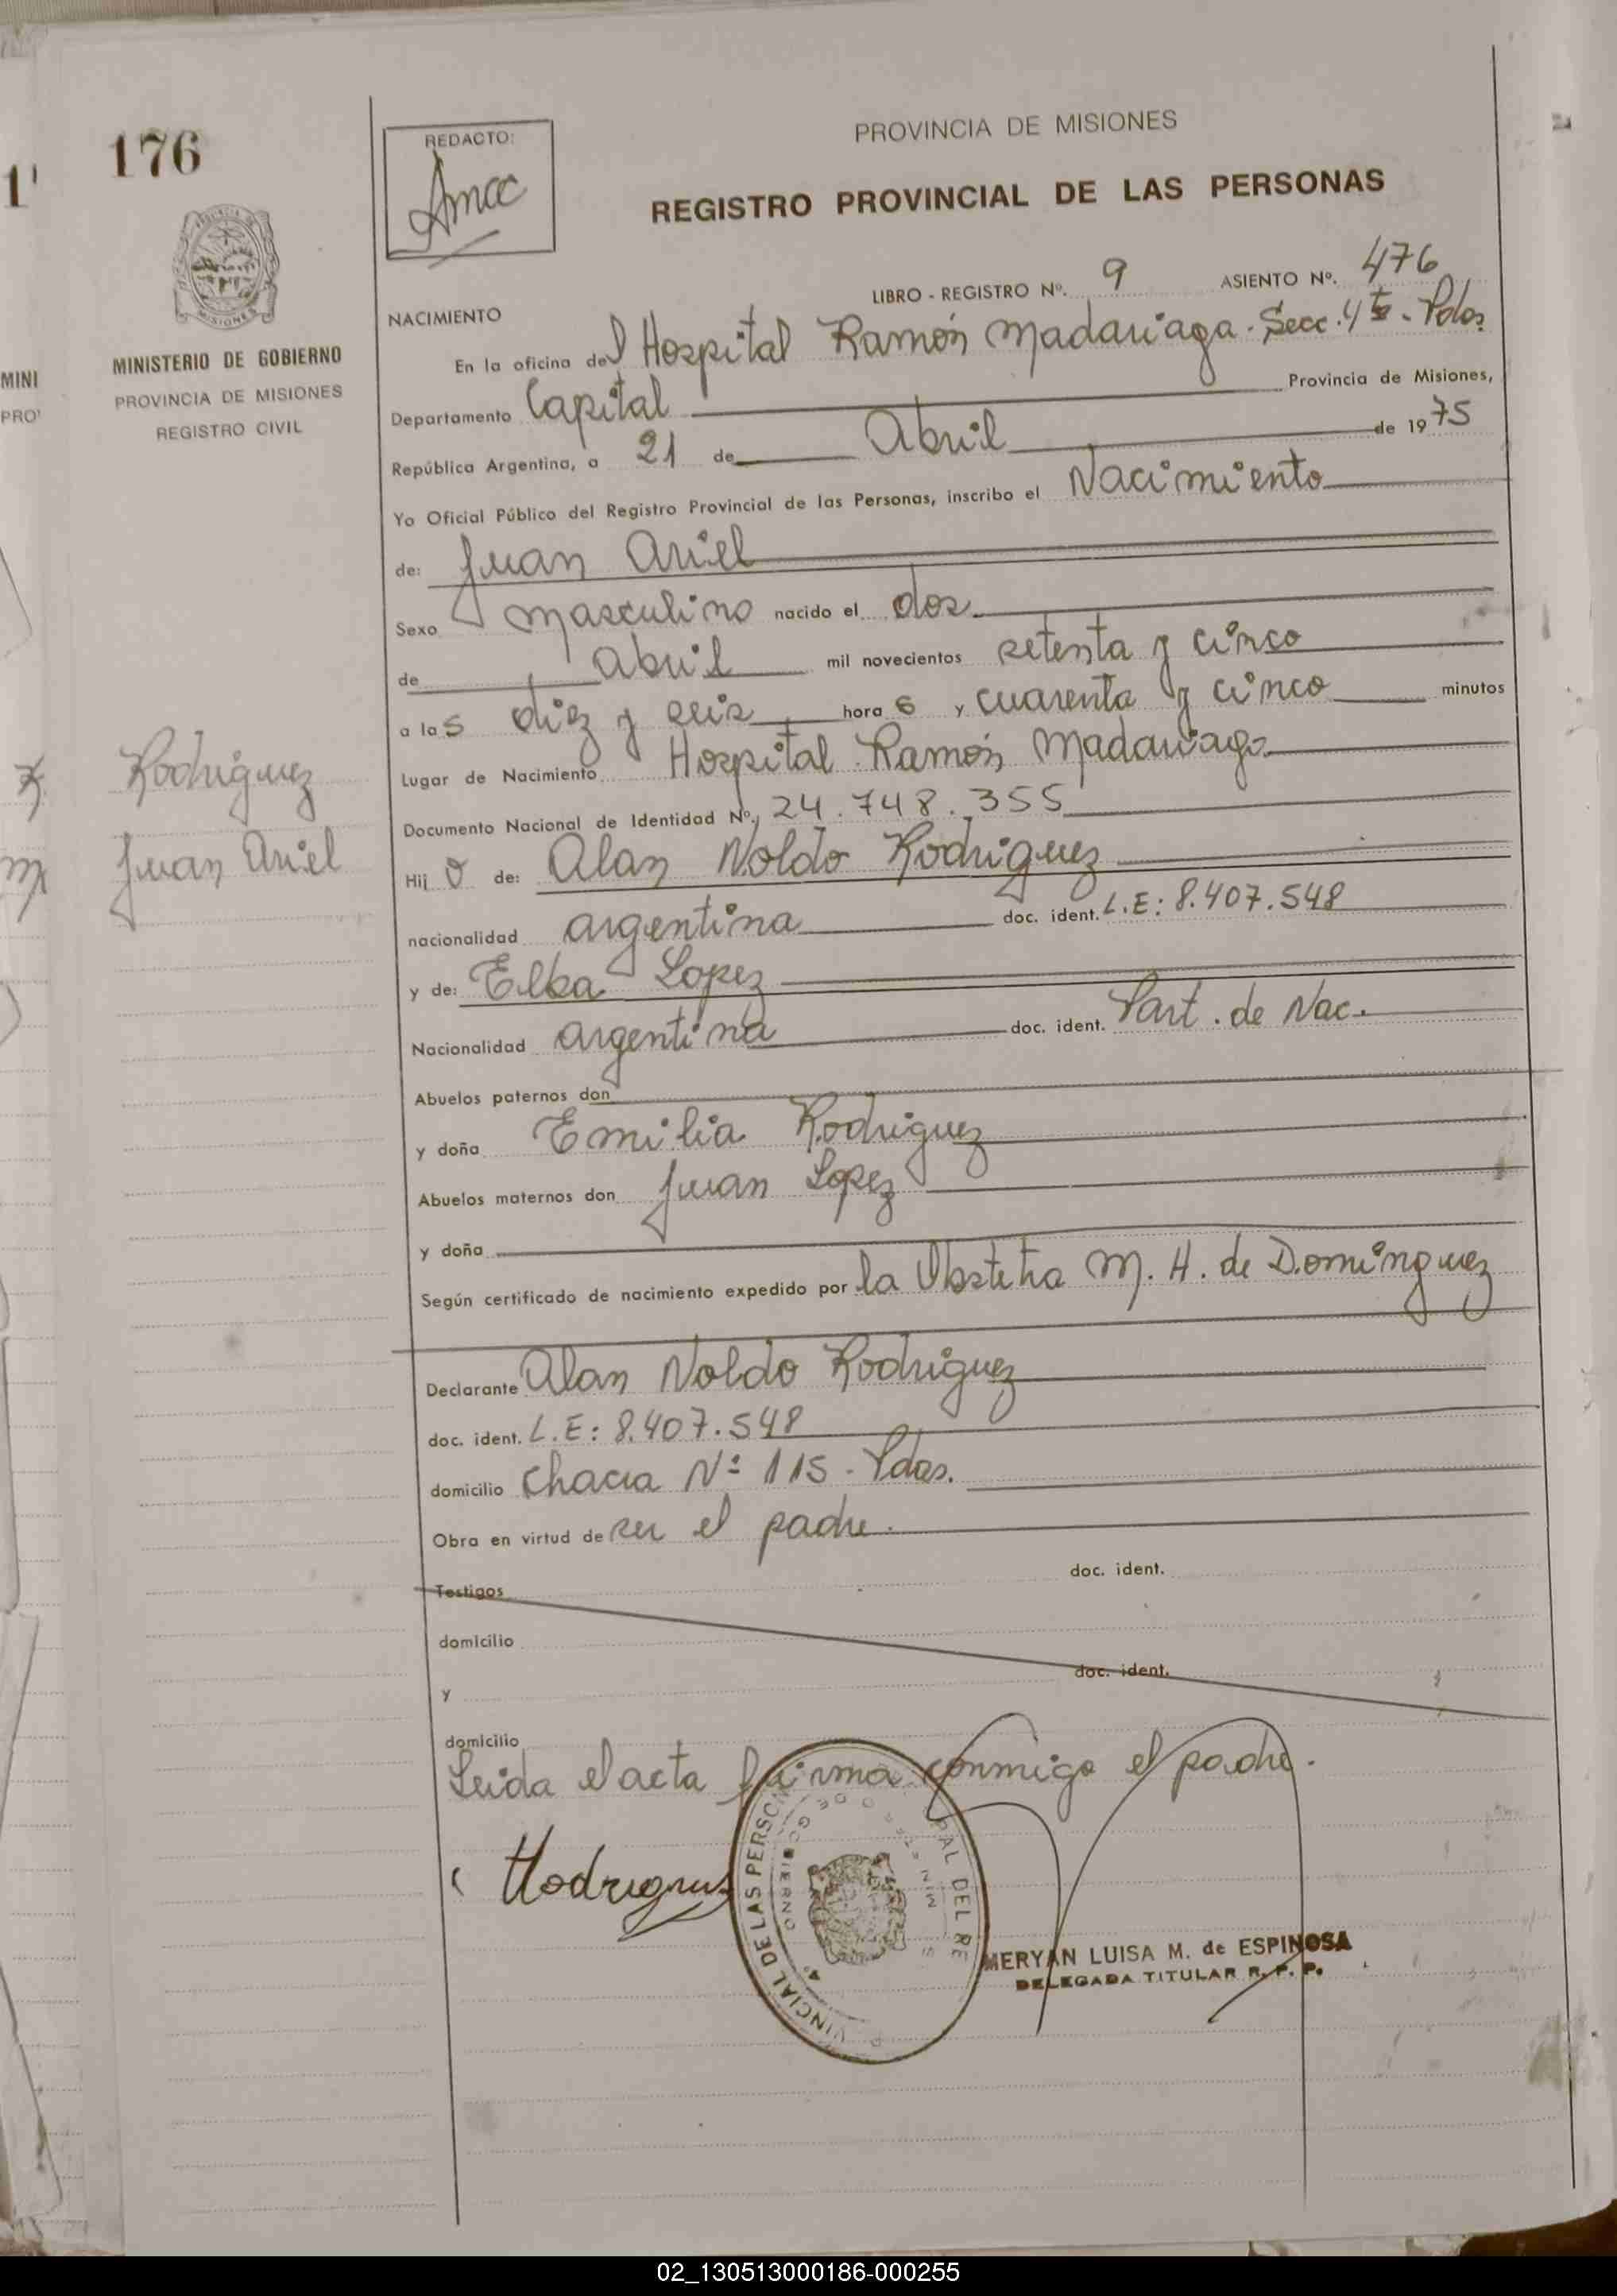 176
REDACTO:
PROVINCIA DE MISIONES
REGISTRO PROVINCIAL DE LAS PERSONAS
LIBRO - REGISTRO Nº. 9 ASIENTO Nº. 476
MINISTERIO DE GOBIERNO
PROVINCIA DE MISIONES
REGISTRO CIVIL
NACIMIENTO
En la oficina del Hospital Ramón Madariaga. Secc. 4ta. Pdas.
Departamento Capital Provincia de Misiones,
República Argentina, a 21 de Abril de 1975
Yo Oficial Público del Registro Provincial de las Personas, inscribo el Nacimiento
de: Juan Ariel
Sexo masculino nacido el dos
de abril mil novecientos setenta y cinco
a las diez y seis horas y cuarenta y cinco minutos
Lugar de Nacimiento Hospital Ramón Madariaga
Documento Nacional de Identidad Nº. 24.748.355
Rodriguez
Juan Ariel
Hijo de: Alan Noldo Rodriguez
nacionalidad argentina doc. ident. L.E: 8.407.548
y de: Elba Lopez
Nacionalidad argentina doc. ident. Part. de Nac.
Abuelos paternos don
y doña Emilia Rodriguez
Abuelos maternos don Juan Lopez
y doña
Según certificado de nacimiento expedido por la Obstetra M. H. de Dominguez
Declarante Alan Noldo Rodriguez
doc. ident. L.E: 8.407.548
domicilio Chacra Nº 115 - Pdas.
Obra en virtud de ser el padre.
doc. ident.
Testigos
domicilio
doc. ident.
y
domicilio
Leida el acta firma conmigo el padre.
MERYAN LUISA M. de ESPINOSA
DELEGADA TITULAR R. P. P.
02_130513000186-000255